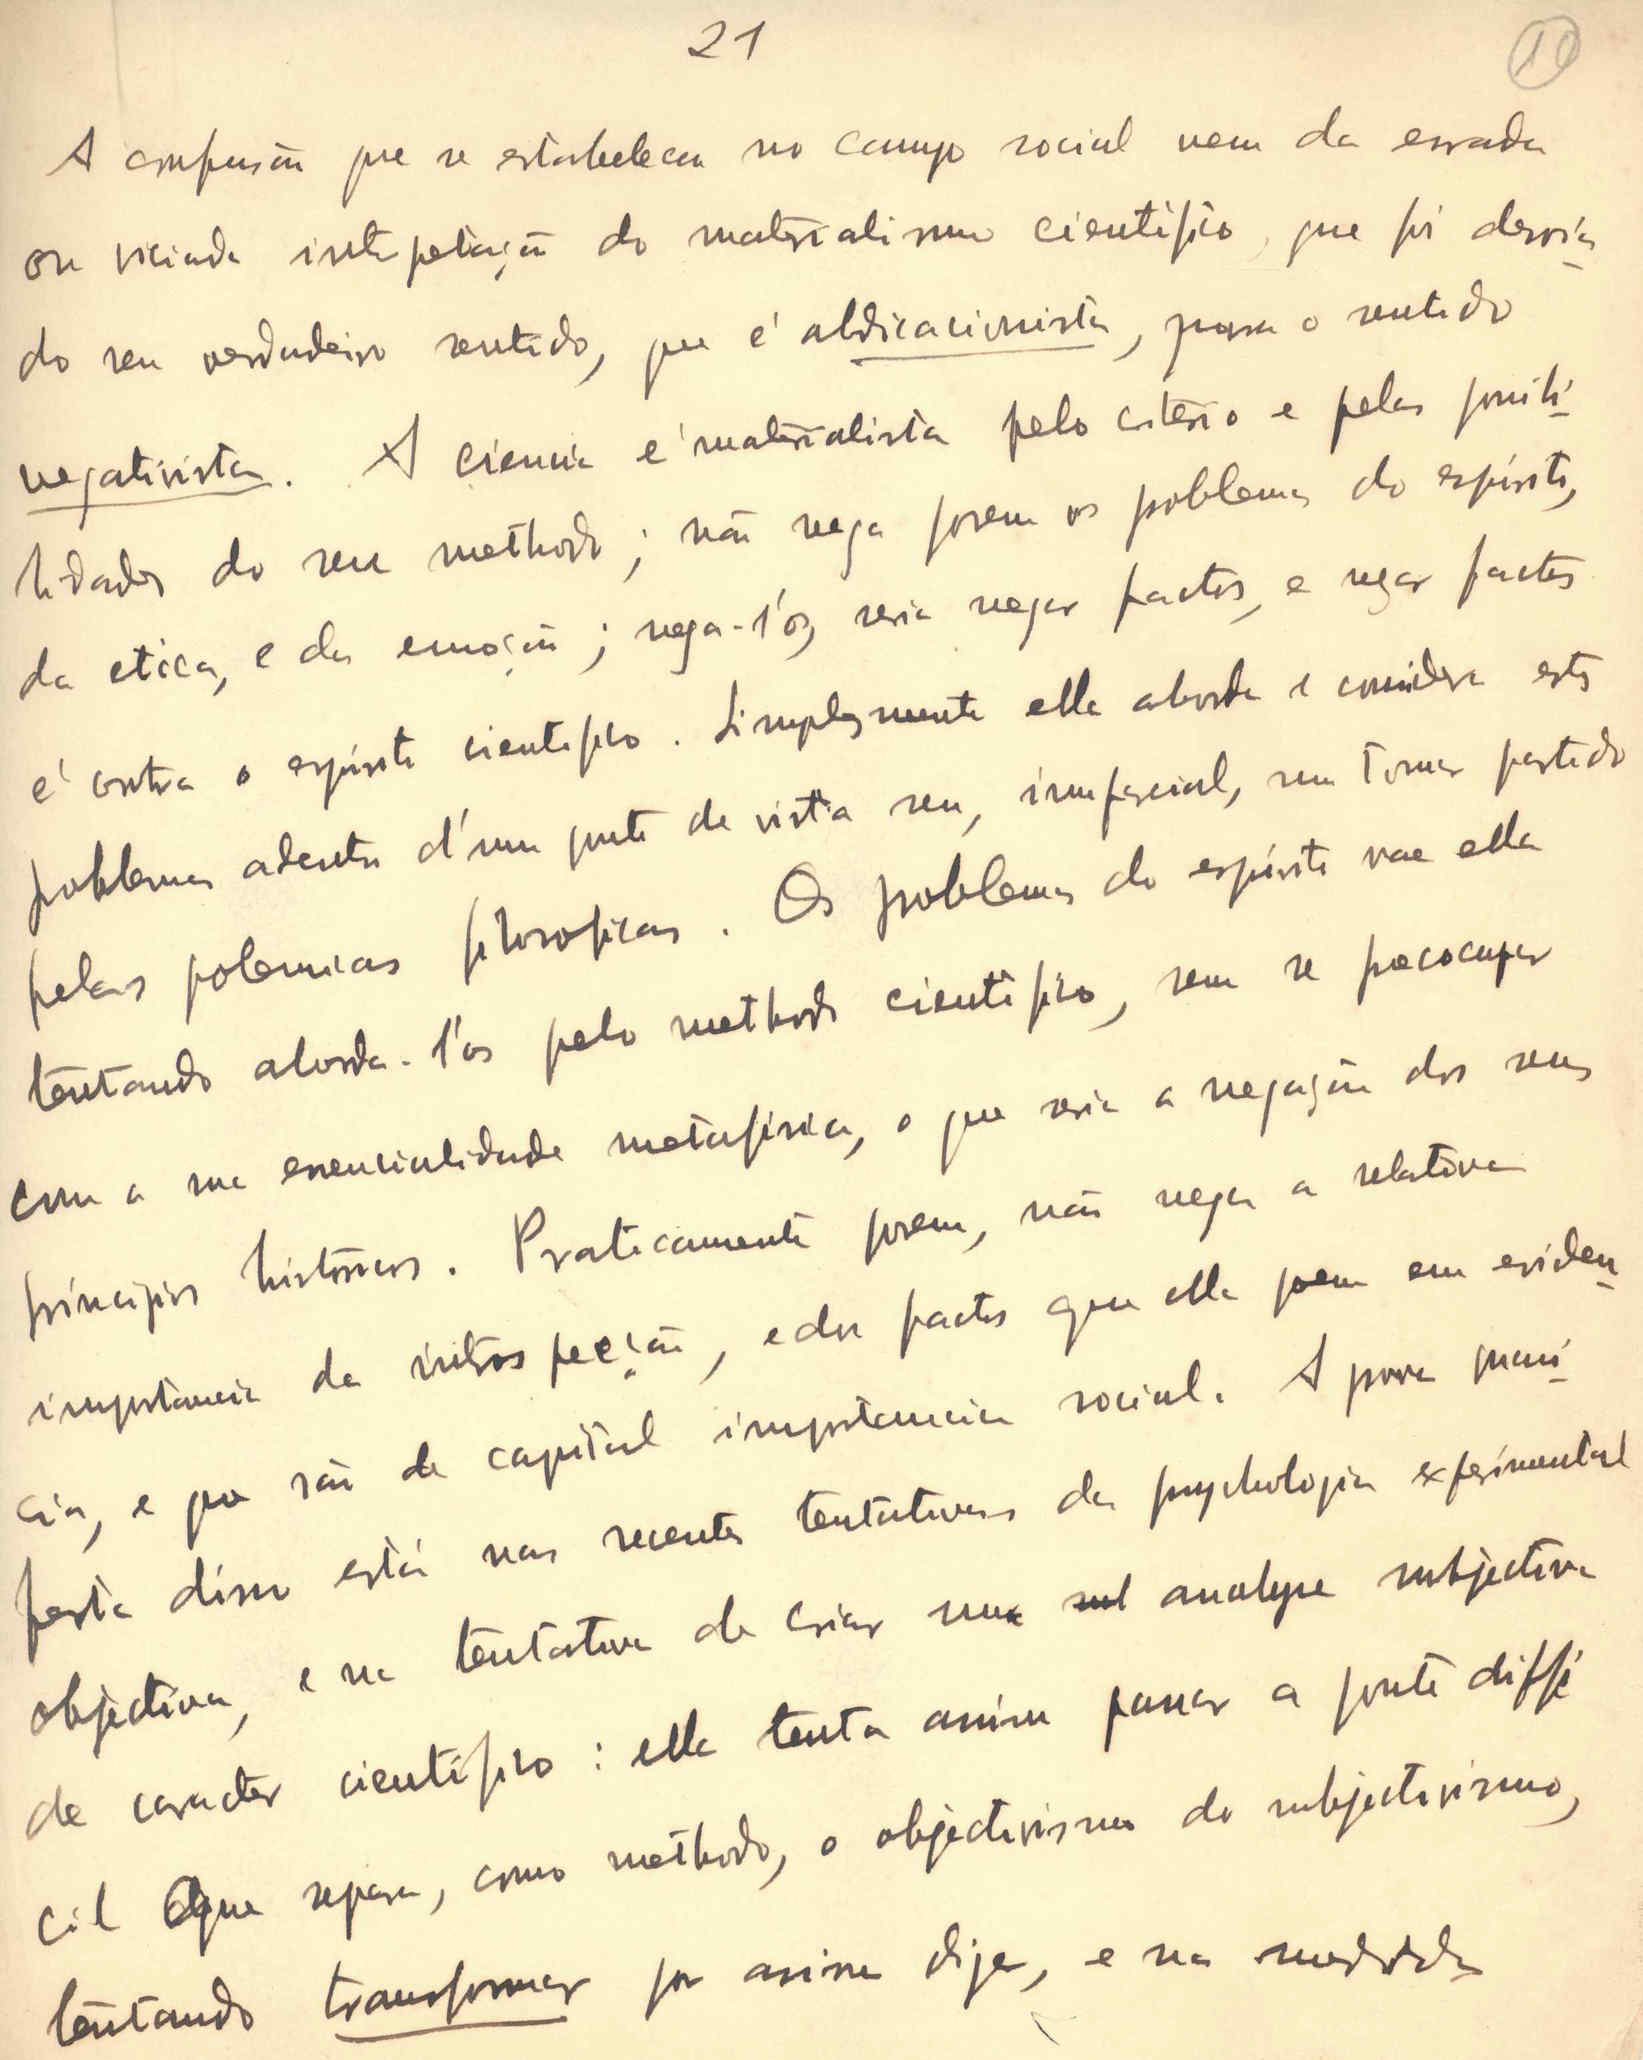 21
10
A confusão que se estabeleceu no campo social vem da errada
ou viciada interpetação do materialismo cientifico, que foi desvia-
do seu verdadeiro sentido, que é abdicacionista, para o sentido
negativista. A ciencia é materialista pelo criterio e pelas possibi-
lidades do seu methodo; não nega porem os problemas do espirito,
da etica, e da emoção; nega-l'os, seria negar factos, e negar factos
é contra o espirito cientifico. Simplesmente ella aborda e considera estes
problemas adentro d'um ponto de vista seu, imparcial, sem tomar partido
pelas polemicas filosoficas. Os problemas do espirito vae ella
tentando aborda-l'os pelo methodo cientifico, sem se preocupar
com a sua essencialidade metafisica, o que seria a negação dos seus
principios historicos. Praticamente porem, não nega a relativa
importancia da introspecção, e dos factos que ella poem em eviden-
cia, e que são de capital importancia social. A prova mani-
festa disso está nas recentes tentativas da psychologia experimental
objectiva, e na tentativa de criar uma analyse subjectiva
de caracter cientifico: ella tenta assim passar a ponte diffi
cil que separa, como methodo, o objectivismo do subjectivismo,
tentando transformar por assim dizer, e na medida